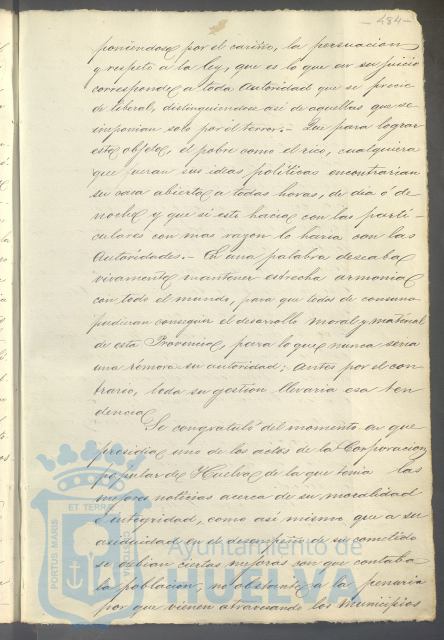 -484-
poniendose por el cariño, la persuacion
y respeto a la ley, que es lo que en su juicio
corresponde a toda Autoridad que se precie
de liberal, distinguiendose asi de aquellas que se
imponian solo por el terror.- Que para lograr
este objeto, el pobre como el rico, cualquiera
que fueran sus ideas políticas encontrarian
su casa abierta a todas horas, de dia ó de
noche y que si esto hacia con los parti-
culares con mas razon lo haria con las
Autoridades.- En una palabra deseaba
vivamente mantener estrecha armonia
con todo el mundo, para que todos de consuno
pudieran conseguir el desarrollo moral y material
de esta Provincia, para lo que nunca seria
una rémora su autoridad; antes por el con-
trario, toda su gestion llevaria esa ten
dencia
Se congratuló del momento en que
presidia uno de los actos de la Corporacion
popular de Huelva de la que tenia las
mejores noticias acerca de su moralidad
é integridad, como asi mismo que a su
asiduidad en el desempeño de su cometido
se debian ciertas mejoras con que contaba
la poblacion, no obstante a la penuria
por que vienen atravesando los Municipios
PORTUS MARIS
ET TERRAE
CUSTODIA
Ayuntamiento de
HUELVA